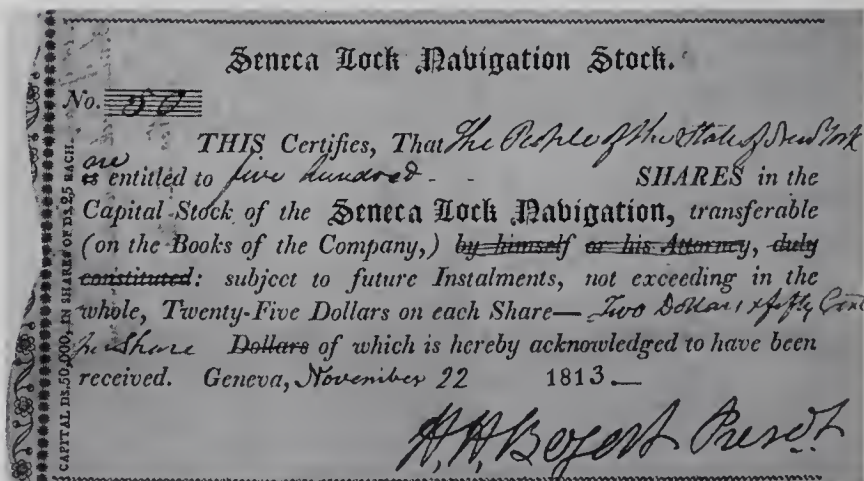 Seneca Lock Navigation Stock.
No. 50
THIS Certifies, That The People of the State of New York
are
is entitled to five hundred - - SHARES in the
Capital Stock of the Seneca Lock Navigation, transferable
(on the Books of the Company,) by himself or his Attorney, duly
constituted: subject to future Instalments, not exceeding in the
whole, Twenty-Five Dollars on each Share— Two Dollars & fifty Cents
per Share Dollars of which is hereby acknowledged to have been
received. Geneva, November 22 1813—
H. H. Bogert Presdt
CAPITAL DS. 50,000, IN SHARES OF DS. 25 EACH.